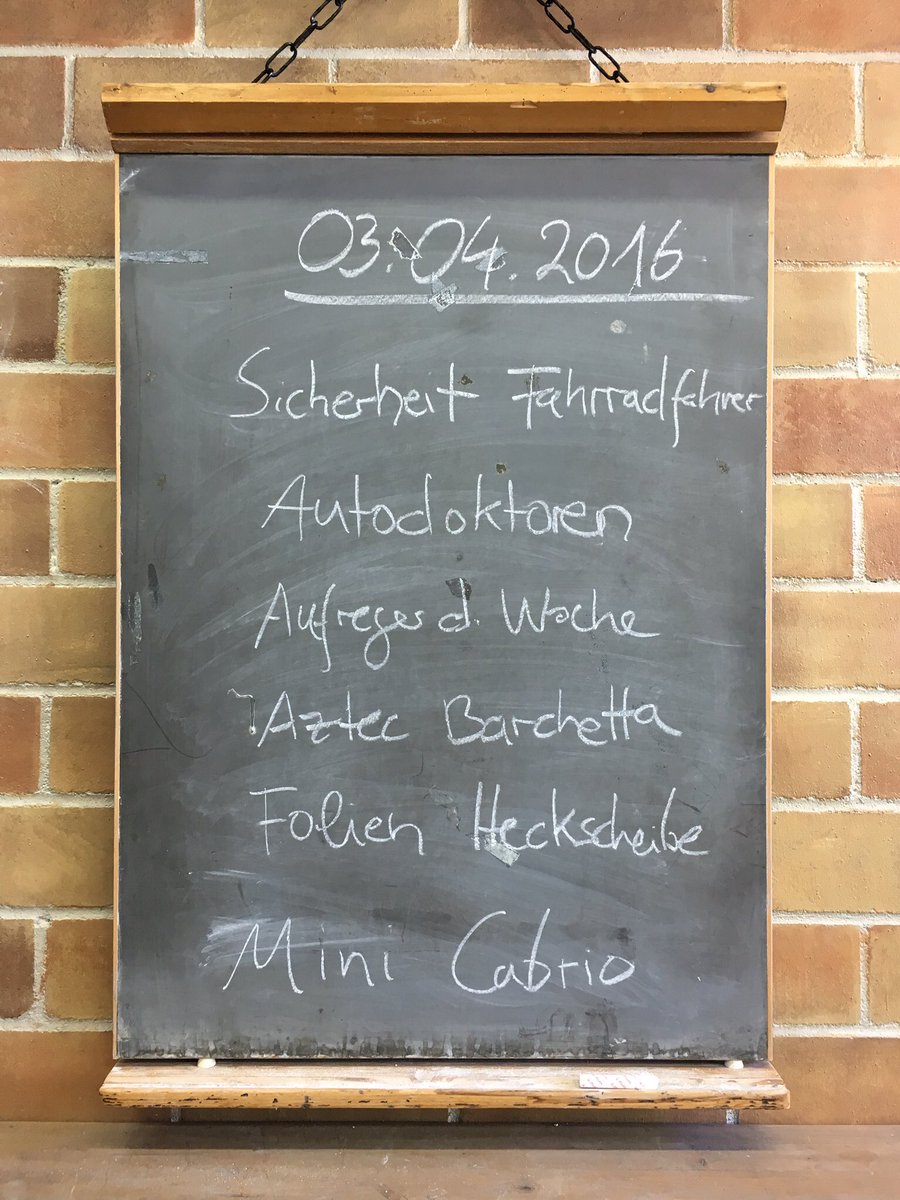 03.04.2016
Sicherheit Fahrradfahrer
Autodoktoren
Aufreger d. Woche
Aztec Barchetta
Folien Heckscheibe
Mini Cabrio